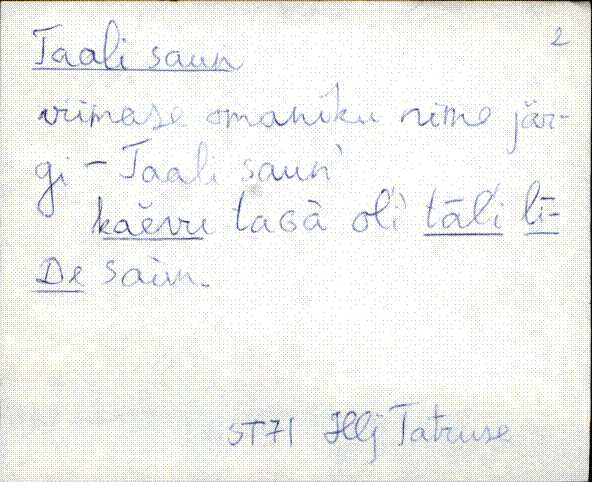 2
Taali saun
viimase omaniku nime jär-
gi - Taali saun'
kaĕvu taGà ol'i tāl'i lī-
De saùn.
ST71 Hlj Tatruse